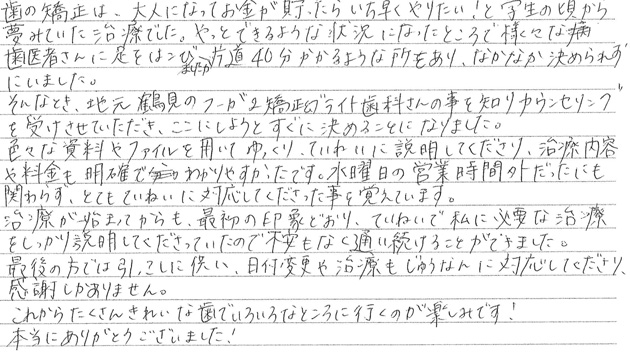 歯の矯正は、大人になってお金が貯ったらいち早くやりたい!と学生の頃から
夢みていた治療でした。やっとできるような状況になったところで様々な病
歯医者さんに足をはこび、片道40分かかるような所もあり、なかなか決められず
にいました。
そんなとき、地元鶴見のフーガ2矯正ブライト歯科さんの事を知りカウンセリング
を受けさせていただき、ここにしようとすぐに決めることになりました。
色々な資料やファイルを用いてゆっくり、ていねいに説明してくださり、治療内容
や料金も明確でわかりやすかったです。水曜日の営業時間外だったにも
関わらず、とてもていねいに対応してくださった事を覚えています。
治療が始まってからも、最初の印象どおり、ていねいで私に必要な治療
をしっかり説明してくださっていたので不安もなく通い続けることができました。
最後の方では引っこしに伴い、日付変更や治療もじゅうなんに対応してくださり、
感謝しかありません。
これからたくさんきれいな歯でいろいろなところに行くのが楽しみです!
本当にありがとうございました!